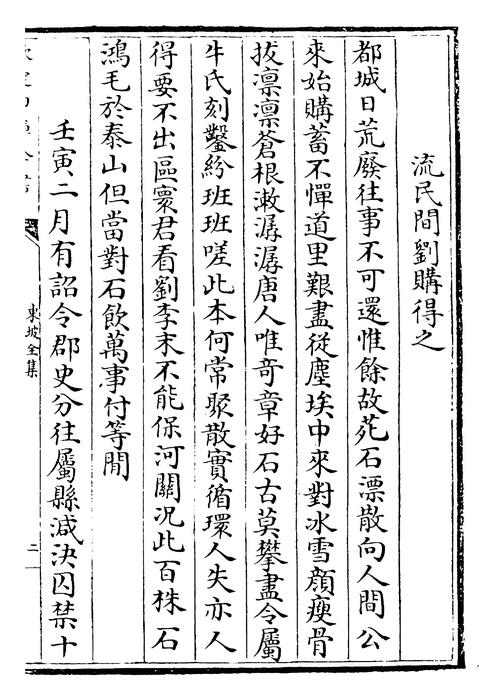 流民間劉購得之
都城日荒廢往事不可還惟餘故苑石漂散向人間公
來始購蓄不憚道里艱盡從塵埃中來對冰雪顔瘦骨
拔凛凛蒼根漱潺潺唐人唯竒章好石古莫攀盡令屬
牛氏刻鑿紛班班嗟此本何常聚散實循環人失亦人
得要不出區寰君看劉李末不能保河關況此百株石
鴻毛於泰山但當對石飲萬事付等閒
壬寅二月有詔令郡吏分往屬縣減決囚禁十
東坡全集
二